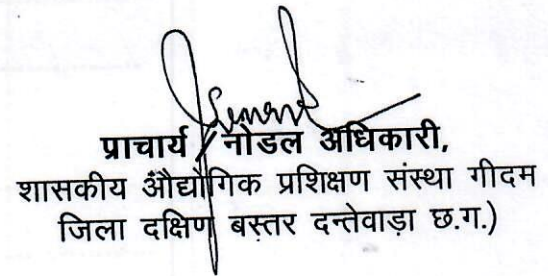 प्राचार्य / नोडल अधिकारी,
शासकीय औद्यौगिक प्रशिक्षण संस्था गीदम
जिला दक्षिण बस्तर दन्तेवाड़ा छ.ग.)